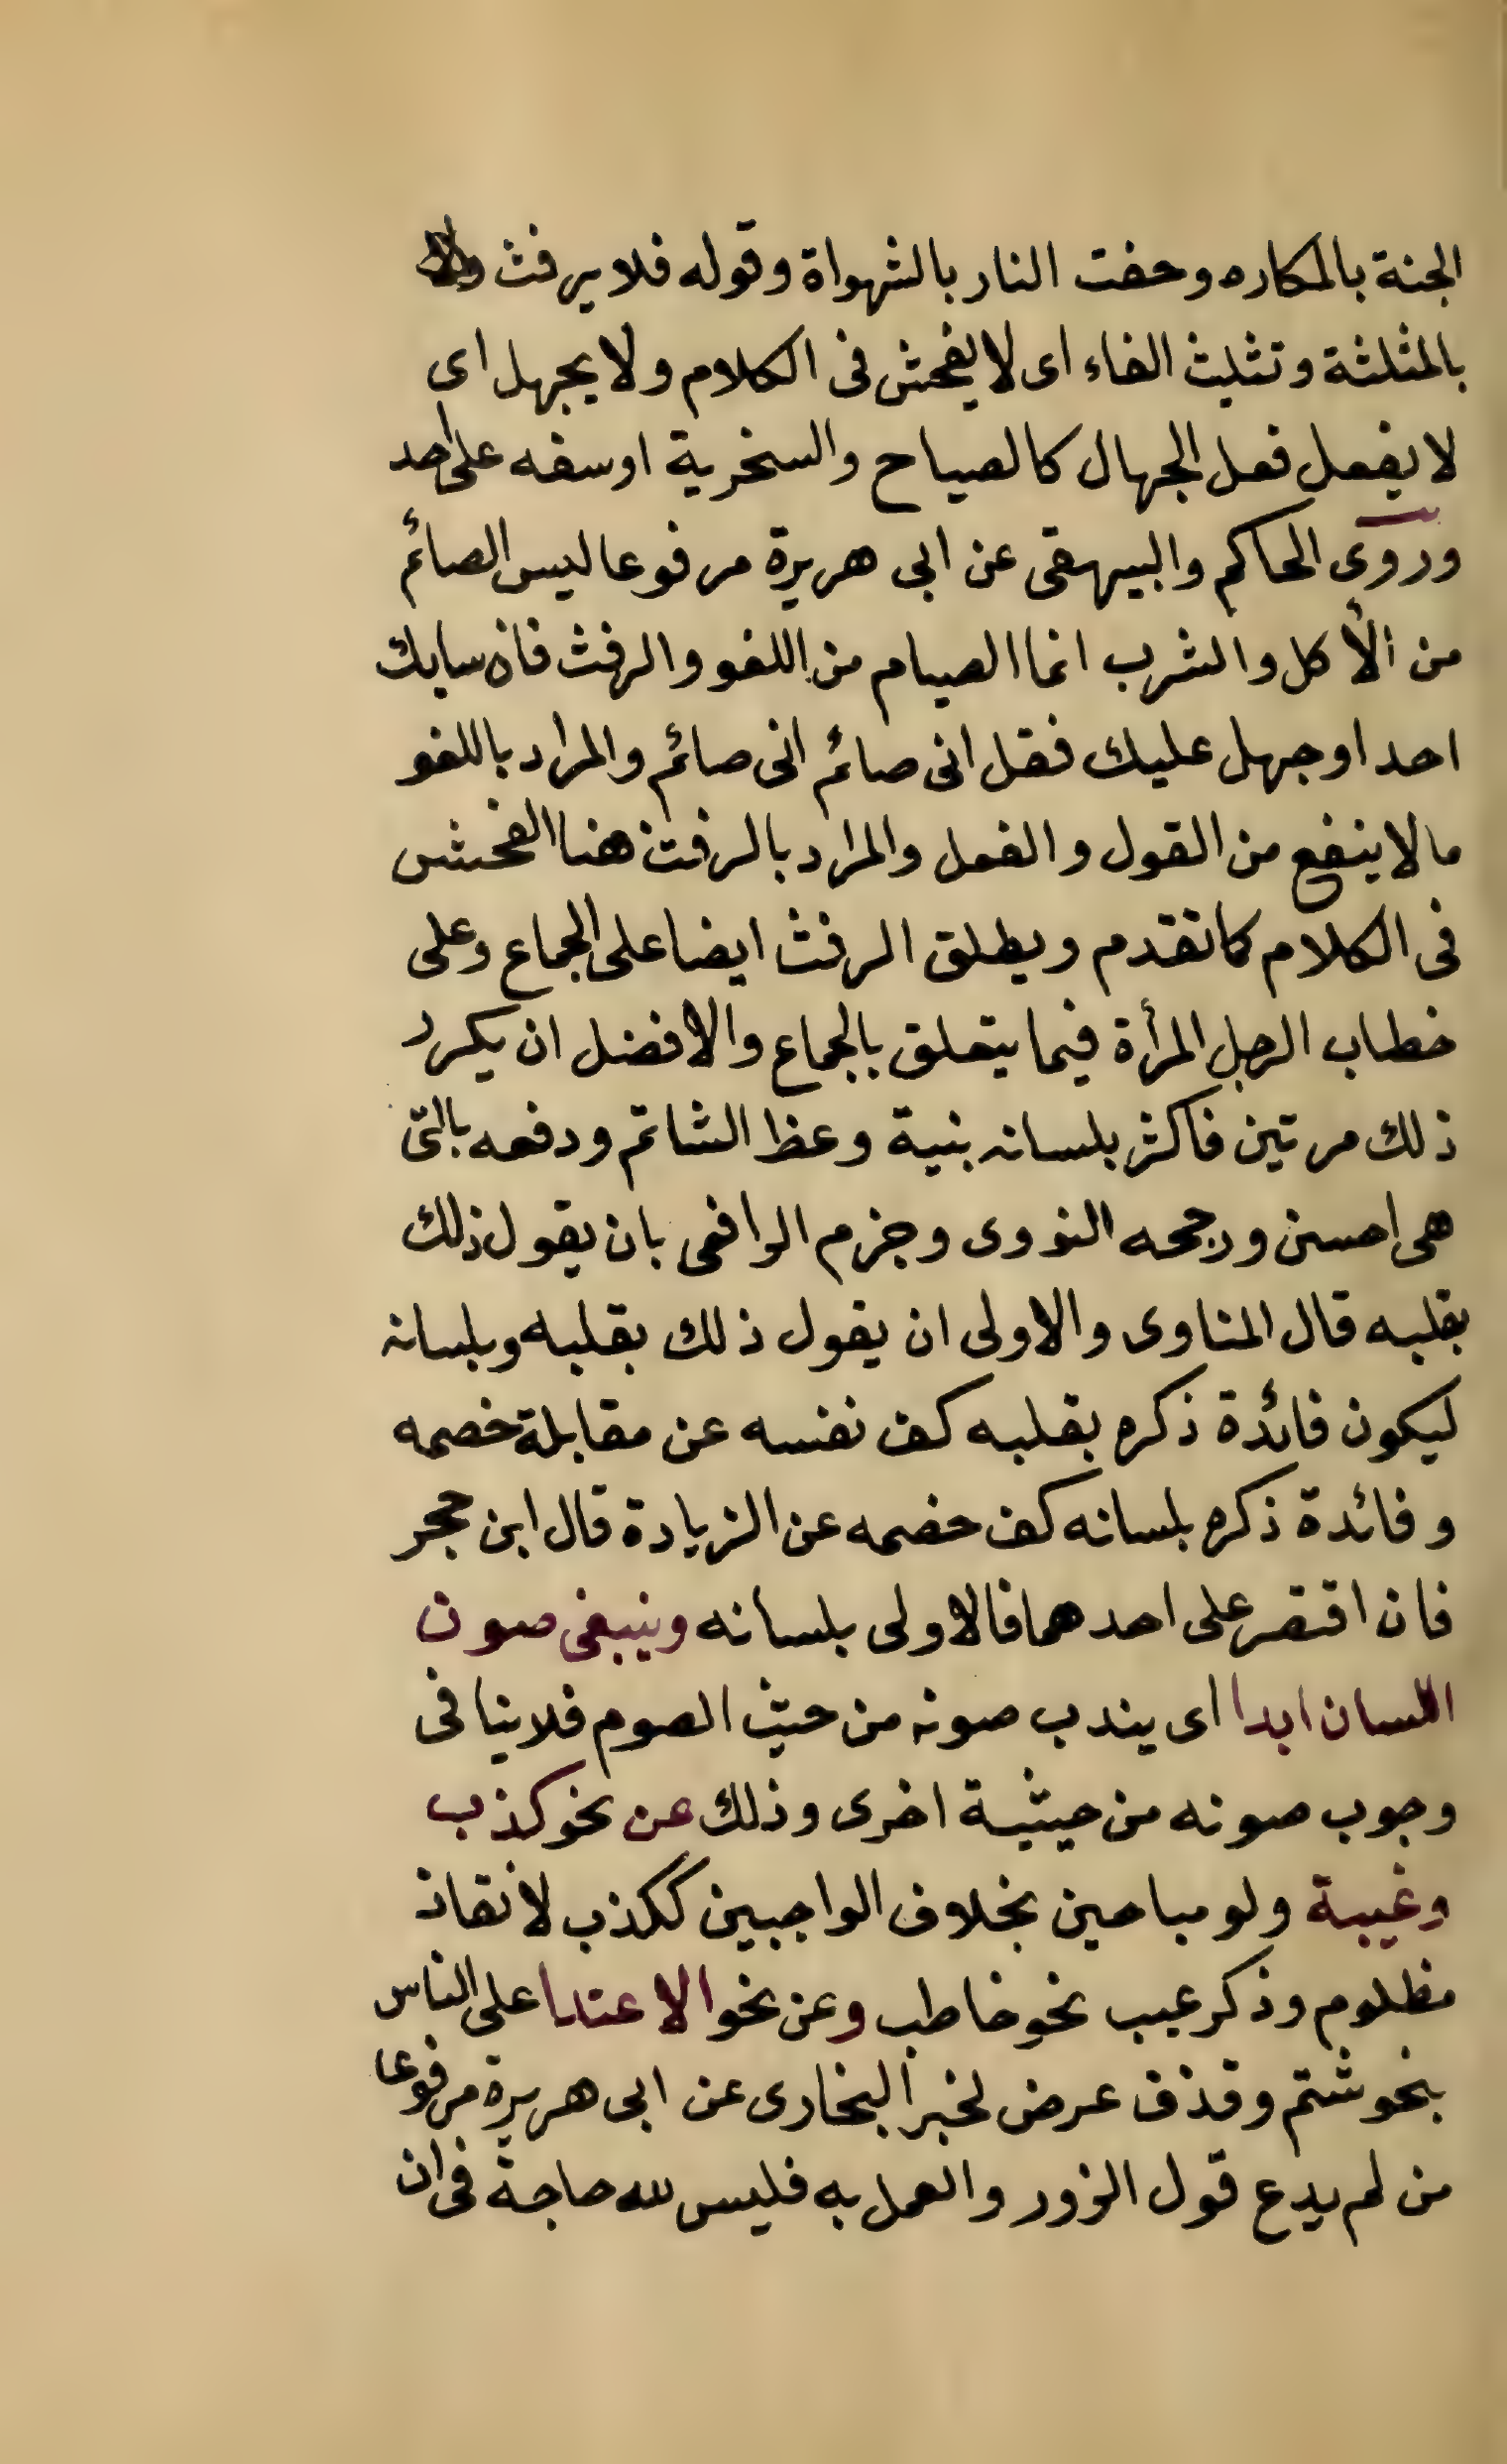 الجنة بالمكاره وحفت النار بالشهواة وقوله فلا يرفث
بالمثلثة وتثليث الفاء اى لا يفحش فى الكلام ولا يجهل اى
لا يفعل فعل الجهال كالصياح والسخرية او سفه على احد
وروى الحاكم والبيهقى عن ابى هريرة مرفوعا ليس الصائم
من الأكل والشرب انما الصيام من اللغو والرفث فان سابك
احد او جهل عليك فقل انى صائم انى صائم والمراد باللغو
ما لا ينفع من القول والفعل والمراد بالرفث هنا الفحش
فى الكلام كما تقدم ويطلق الرفث ايضا على الجماع وعلى
خطاب الرجل المرأة فيما يتعلق بالجماع والافضل ان يكرر
ذلك مرتين فاكثر بلسانه بنية وعظ الشاتم ودفعه بالتى
هى احسن ورجحه النووى وجزم الرافعى بان يقول ذلك
بقلبه قال المناوى والاولى ان يقول ذلك بقلبه وبلسانه
ليكون فائدة ذكره بقلبه كف نفسه عن مقابلة خصمه
وفائدة ذكره بلسانه كف خصمه عن الزيادة قال ابن حجر
فان اقتصر على احدهما فالاولى بلسانه وينبغى صون
اللسان ابدا اى يندب صونه من حيث الصوم فلا ينافى
وجوب صونه من حيثية اخرى وذلك عن نحو كذب
وغيبة ولو مباحين بخلاف الواجبين ككذب لأنقاذ
مظلوم وذكر عيب نحو خاطب وعن نحو الاعتدا على الناس
بنحو شتم وقذف عرض لخبر البخارى عن ابى هريرة مرفوعا
من لم يدع قول الزور والعمل به فليس لله حاجة فى ان